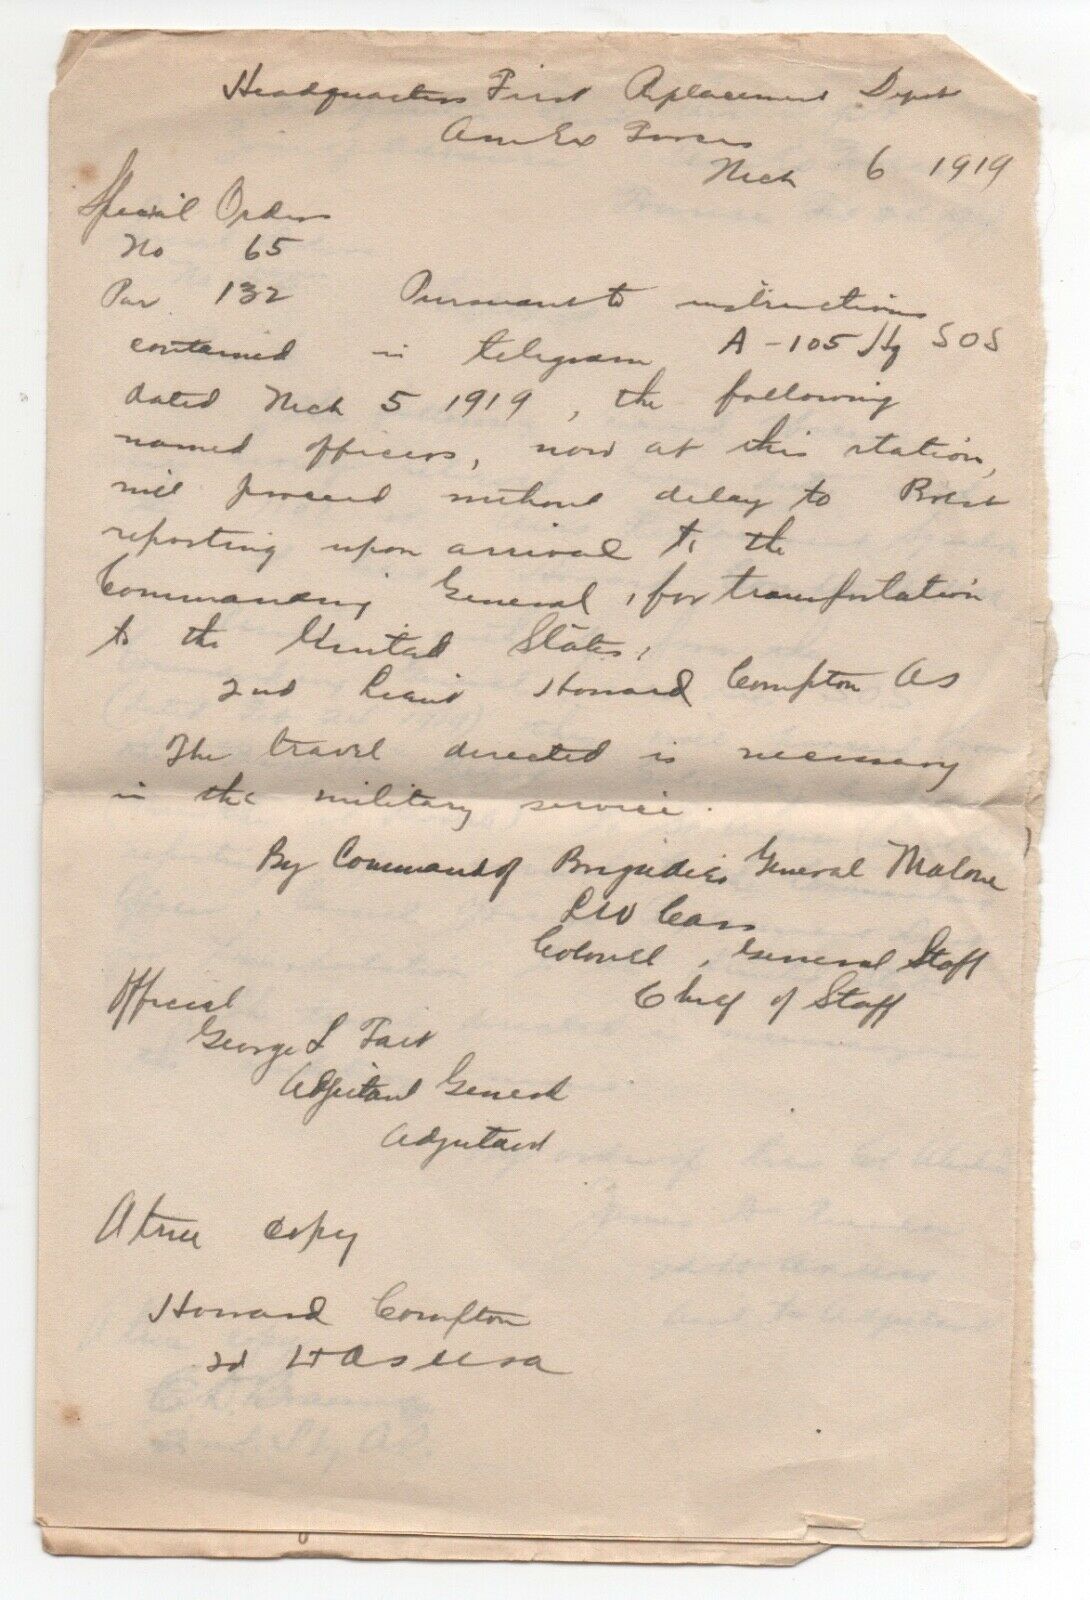 Headquarters First Replacement Depot
Am Ex Forces
Mch 6 1919
Special Orders
No 65
Par 132 Pursuant to instructions
contained in telegram A-105 Hq SOS
dated Mch 5 1919, the following
named officers, now at this station,
will proceed without delay to Brest
reporting upon arrival to the
Commanding General, for transportation
to the United States,
2nd Lieut Howard Compton AS
The travel directed is necessary
in the military service.
By Command of Brigadier General Malone
Colonel, General Staff
Chief of Staff
Official
George L
Adjutant General
Adjutant
A true copy
Howard Compton
2d Lt AS USA